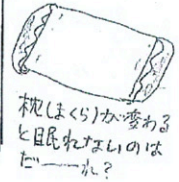 枕(まくら)が変わる
と眠れないのは
だ——れ?